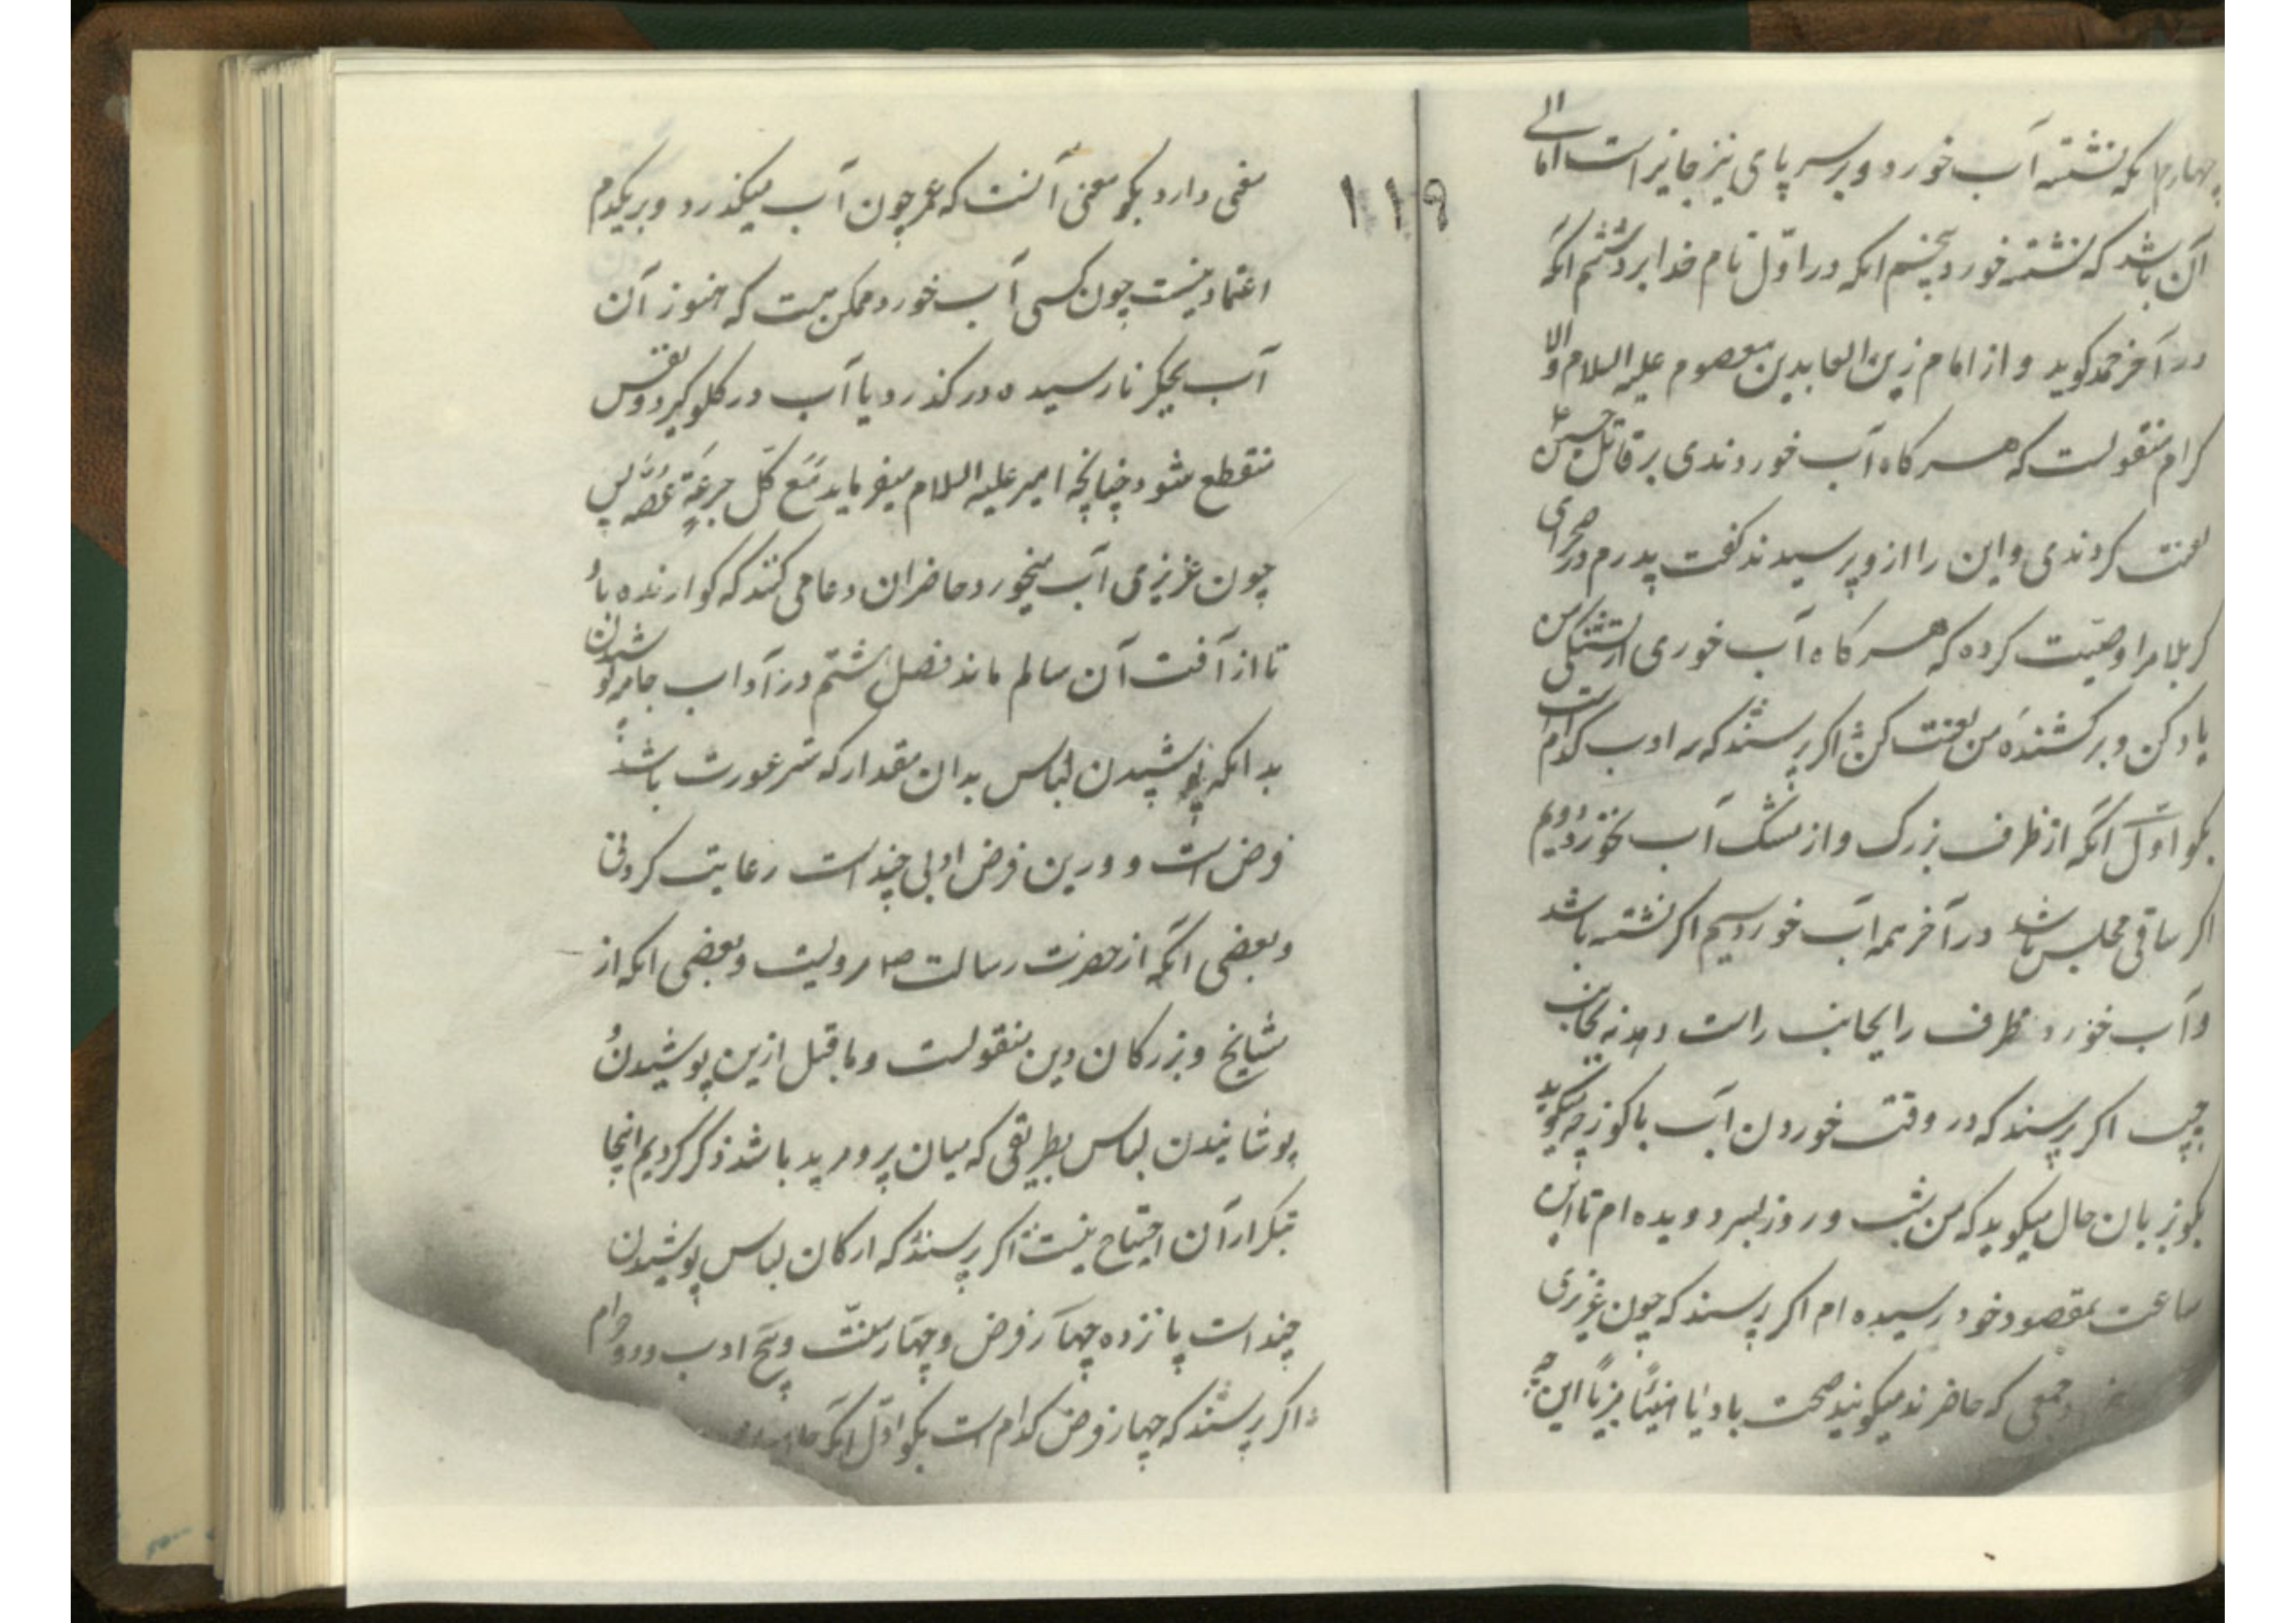 چهارم انکه نشسته آب خورد و بر سر پای نیز جایز است اما اولی
آن باشد که نشسته خورد پنجم انکه در اوّل نام خدا برد ششم انکه
در آخر حمد کوید و از امام زین العابدین معصوم علیه السلام
کرام منقولست که هر کاه آب خوردندی بر قاتل حسین ع
لعنت کردندی و این را ازو پرسیدند کفت پدرم در صحرای
کربلا مرا وصیّت کرده که هر کاه آب خوری از تشنکی من
یاد کن و بر کشندهٔ من لعنت کن اکر پرسند که ادب کدام است
بکو اوّل آنکه از ظرف بزرک و از مشک آب نخورد دویم
اکر ساقی مجلس باشد در آخر همه آب خورد سیم اکر نشسته باشد
و آب خورد ظرف را بجانب راست دهد نه بجانب
چپ اکر پرسند که در وقت خوردن آب با کوزه چه میکوید
بکو بزبان حال میکوید که من شب و روز بسر دویده ام تا این
ساعت بمقصود خود رسیده ام اکر پرسند که چون عزیزی
جمعی که حاضرند میکویند صحت باد یا هنیئاً مریاً این چه
۱۱۹
معنی دارد بکو معنی آنست که عمر چون آب میکذرد و بر یکدم
اعتماد نیست چون کسی آب خورد ممکن هست که هنوز آن
آب بجکر نارسیده در کذرد یا آب در کلو کیرد و نفس
منقطع شود چنانچه امیر علیه السلام میفرماید مَعَ کُلّ جرعَةٍ غصّه پس
چون عزیزی آب میخورد حاضران دعا می کنند که کوارنده باد
تا از آفت آن سالم ماند فصل هشتم در آداب جامه پوشیدن
بدانکه پوشیدن لباس بدان مقدار که ستر عورت باشد
فرض است و درین فرض ادبی چند است رعایت کردنی
و بعضی آنکه از حضرت رسالت ص مرویست و بعضی انکه از
مشایخ و بزرکان دین منقولست و ما قبل ازین پوشیدن و
پوشانیدن لباس بطریقی که میان پیر و مرید باشد ذکر کردیم اینجا
بتکرار آن احتیاج نیست اکر پرسند که ارکان لباس پوشیدن
چند است پانزده چهار فرض و چهار سنّت و پنج ادب و دو حرام
اکر پرسند که چهار فرض کدام است بکو اوّل انکه